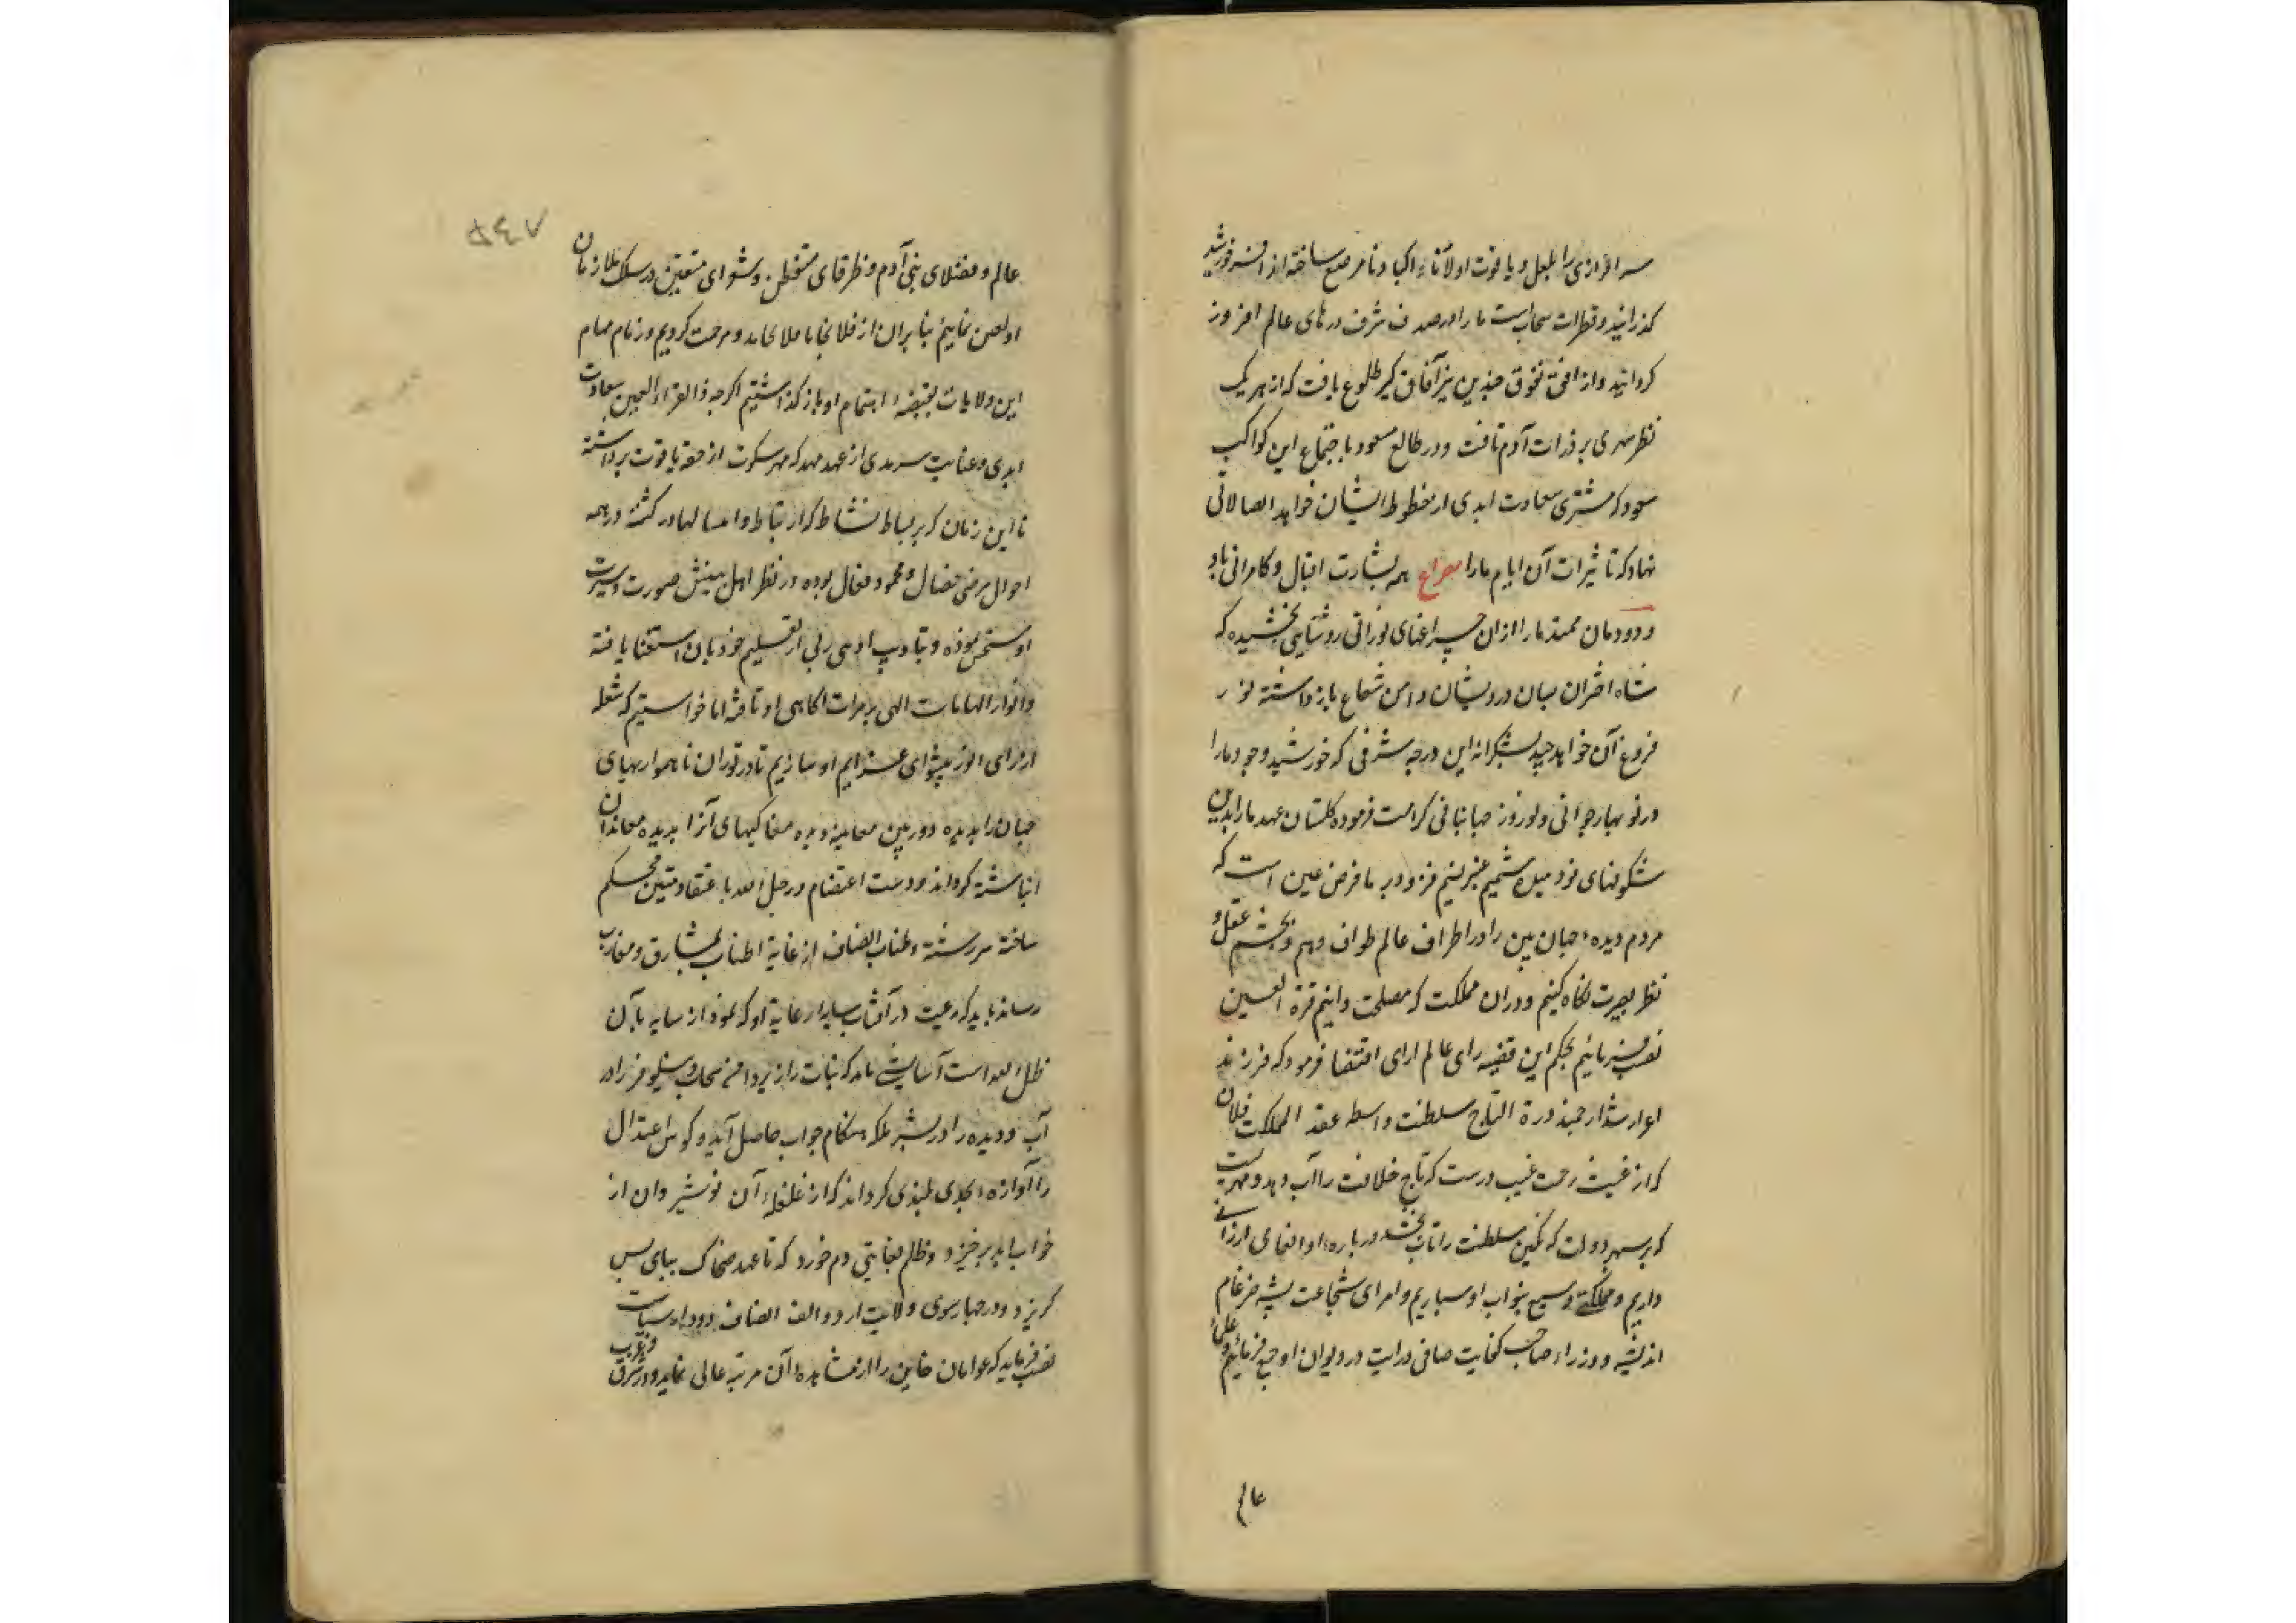 سرافرازی را بلعل و یاقوت اولاد اکبادنا مرصع ساخته از افسر خورشید
کذرانید و قطرات سحاب ما را در صدف شرف درهای عالم افروز
کردانید و از افق تفوق چندین نیر آفاق کیر طلوع یافت که از هر یک
نظر مهری بر ذرات آدم تافت و در طالع مسعود باجتماع این کواکب
سعود که مشتری سعادت ابدی از خطوط ایشان خواهد اتصالاتی
نهاد که تاثیرات آن ایام ما را مصراع همه بشارت اقبال و کامرانی باد
و دودمان ممتد ما را ازان چراغهای نورانی روشنایی بخشیده که
شاه اختران میان درویشان دامن شعاع باز داشته نور
فروغ آن خواهد چید بشکرانه این درجه شرفی که خورشید وجود ما را
در نو بهار جوانی و نوروز جهانبانی کرامت فرموده کلستان عهد ما را بدین
شکوفهای نو دمیده شمیم عنبر نسیم فزود بر ما فرض عین است که
مردم دیده جهان بین را در اطراف عالم طواف دهیم و بچشم عقل و
نظر بصیرت نکاه کنیم و دران مملکت که مصلحت دانیم قرة العین
نصب فرمائیم بحکم این قضیه رای عالم ارای اقتضا فرمود که فرزند
اعز ارشد ارجمند درة التاج سلطنت واسطه عقد المملکت فلان
که از غیث رحمت غیب درست که تاج خلافت را آب دهد و مهریست
که بر سپهر دولت که نکین سلطنت را تاب بخشد درباره او انعامی ارزانی
داریم و مملکتی وسیع بنواب او سپاریم و امرای شجاعت پیشه ضرغام
اندیشه و وزراء صاحب کفایت صافی درایت در دیوان او جمع فرمائیم و علمای
عالم
۵۴۷
عالم و فضلای بنی آدم و ظرفای متفطن و شعرای متعین در سلک ملازمان
او نماییم بنا بران از فلان جا تا فلان جا بدو مرحمت کردیم و زمام مهام
این ولایات بقبضه اهتمام او باز کذاشتیم اکرچه قرة العین سعادت
ابدی و عنایت سرمدی از عهد مهد که مهر سکوت از حقه یاقوت برداشته
تا این زمان که بر بساط نشاط کذشته در همه
احوال مرضی خصال و محمود فعال بوده در نظر اهل بینش صورت و سیرت
او مستحسن نموده و بتادیب ادبنی ربی از تعلیم خود بان استغنا یافته
و انوار الهامات الهی بر مرات اکاهی او تافته اما خواستیم که شعله
از رای انور پیشوای عزایم او سازیم تا در نوردان ناهمواریهای
جهان را بدیده دوربین معاینه دیده مغاکیهای آنرا بدیده معاندان
انباشته کرداند و دست اعتصام در حبل الله با عتقاد متین محکم
ساخته سر رشته طناب انصاف از غایة اطناب بمشارق و مغارب
رساند باید که رعیت در آفتاب سایه دار عنایة او که نمودار سایه بان
ظل الله است آسایشی یابد که نبات را زیر دامن سحاب و نیلوفر را در
آب و دیده را در بستر بلکه هنکام خواب حاصل آید و کوس اعتدال
را آوازه بحدی بلندی کرداند که از غلغله آن نوشیروان از
خواب ابد برخیزد و ظلم بغایتی دم خورد که تا عهد ضحاک بپای پس
کریزد و در چهارسوی ولایت الف انصاف دود سیاست
نصب فرماید که عوانان خاین را از مشاهده آن مرتبه عالی نماید و در شرق
و غرب